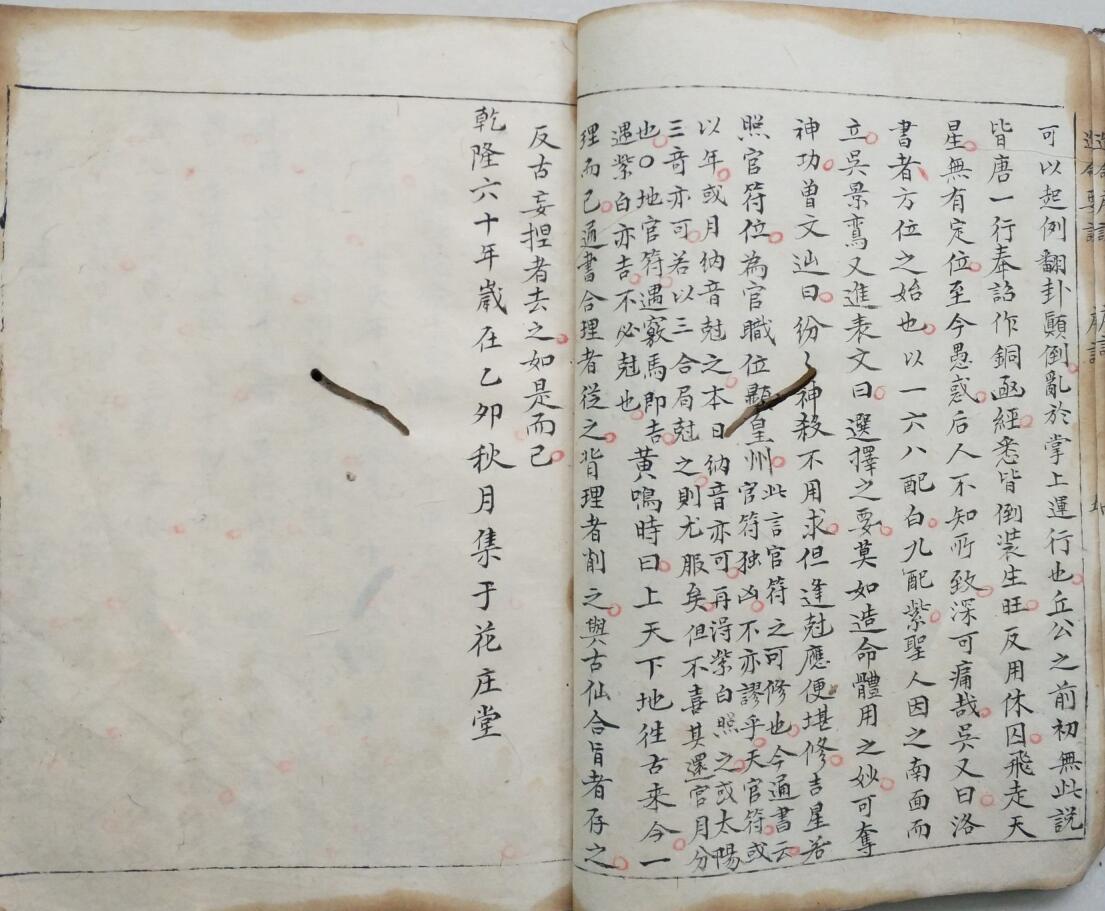 可以起例翻卦顚倒亂於掌上運行也丘公之前初無此説
皆唐一行奉詔作銅凾經悉皆倒装生旺反用休囚飛走天
星無有定位至今愚惑后人不知所致深可痛哉吳又曰洛
書者方位之始也以一六八配白九配紫聖人因之南面而
立吳景鸞又進表文曰選擇之要莫如造命體用之妙可奪
神功曽文辿曰紛〻神殺不用求但逢尅應便堪修吉星若
照官符位為官職位顯皇州此言官符之可修也今通書云
官符独凶不亦謬乎天官符或
以年或月納音尅之本日納音亦可再淂紫白照之或太陽
三竒亦可若以三合局尅之則尤服矣但不喜其還官月分
也〇地官符遇竅馬即吉
遇紫白亦吉不必尅也黄鳴時曰上天下地徃古来今一
理而已通書合理者從之背理者削之與古仙合旨者存之
反古妄揑者去之如是而已
乾隆六十年嵗在乙夘秋月集于花庄堂